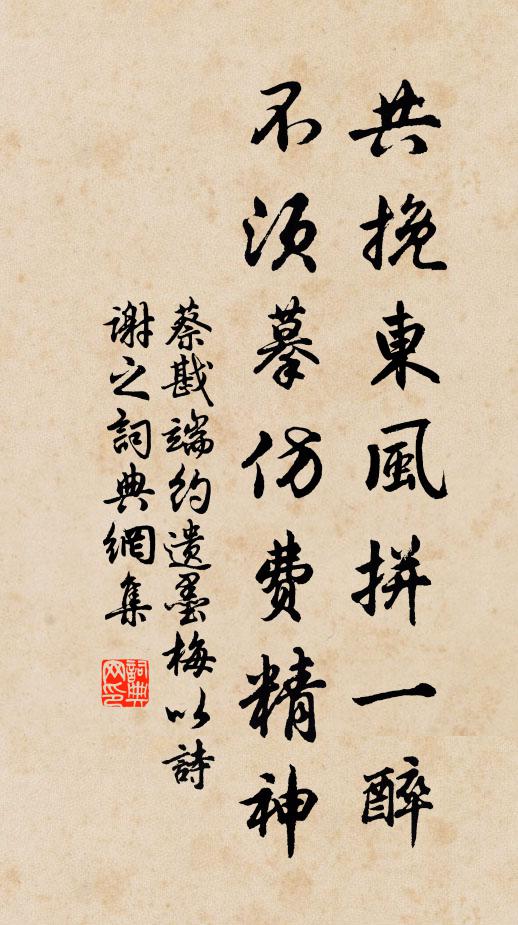 共挽東風拼一醉
不須摹仿費精神
蔡戡端約遺墨梅以詩
謝之詞典網集
詞典
网印